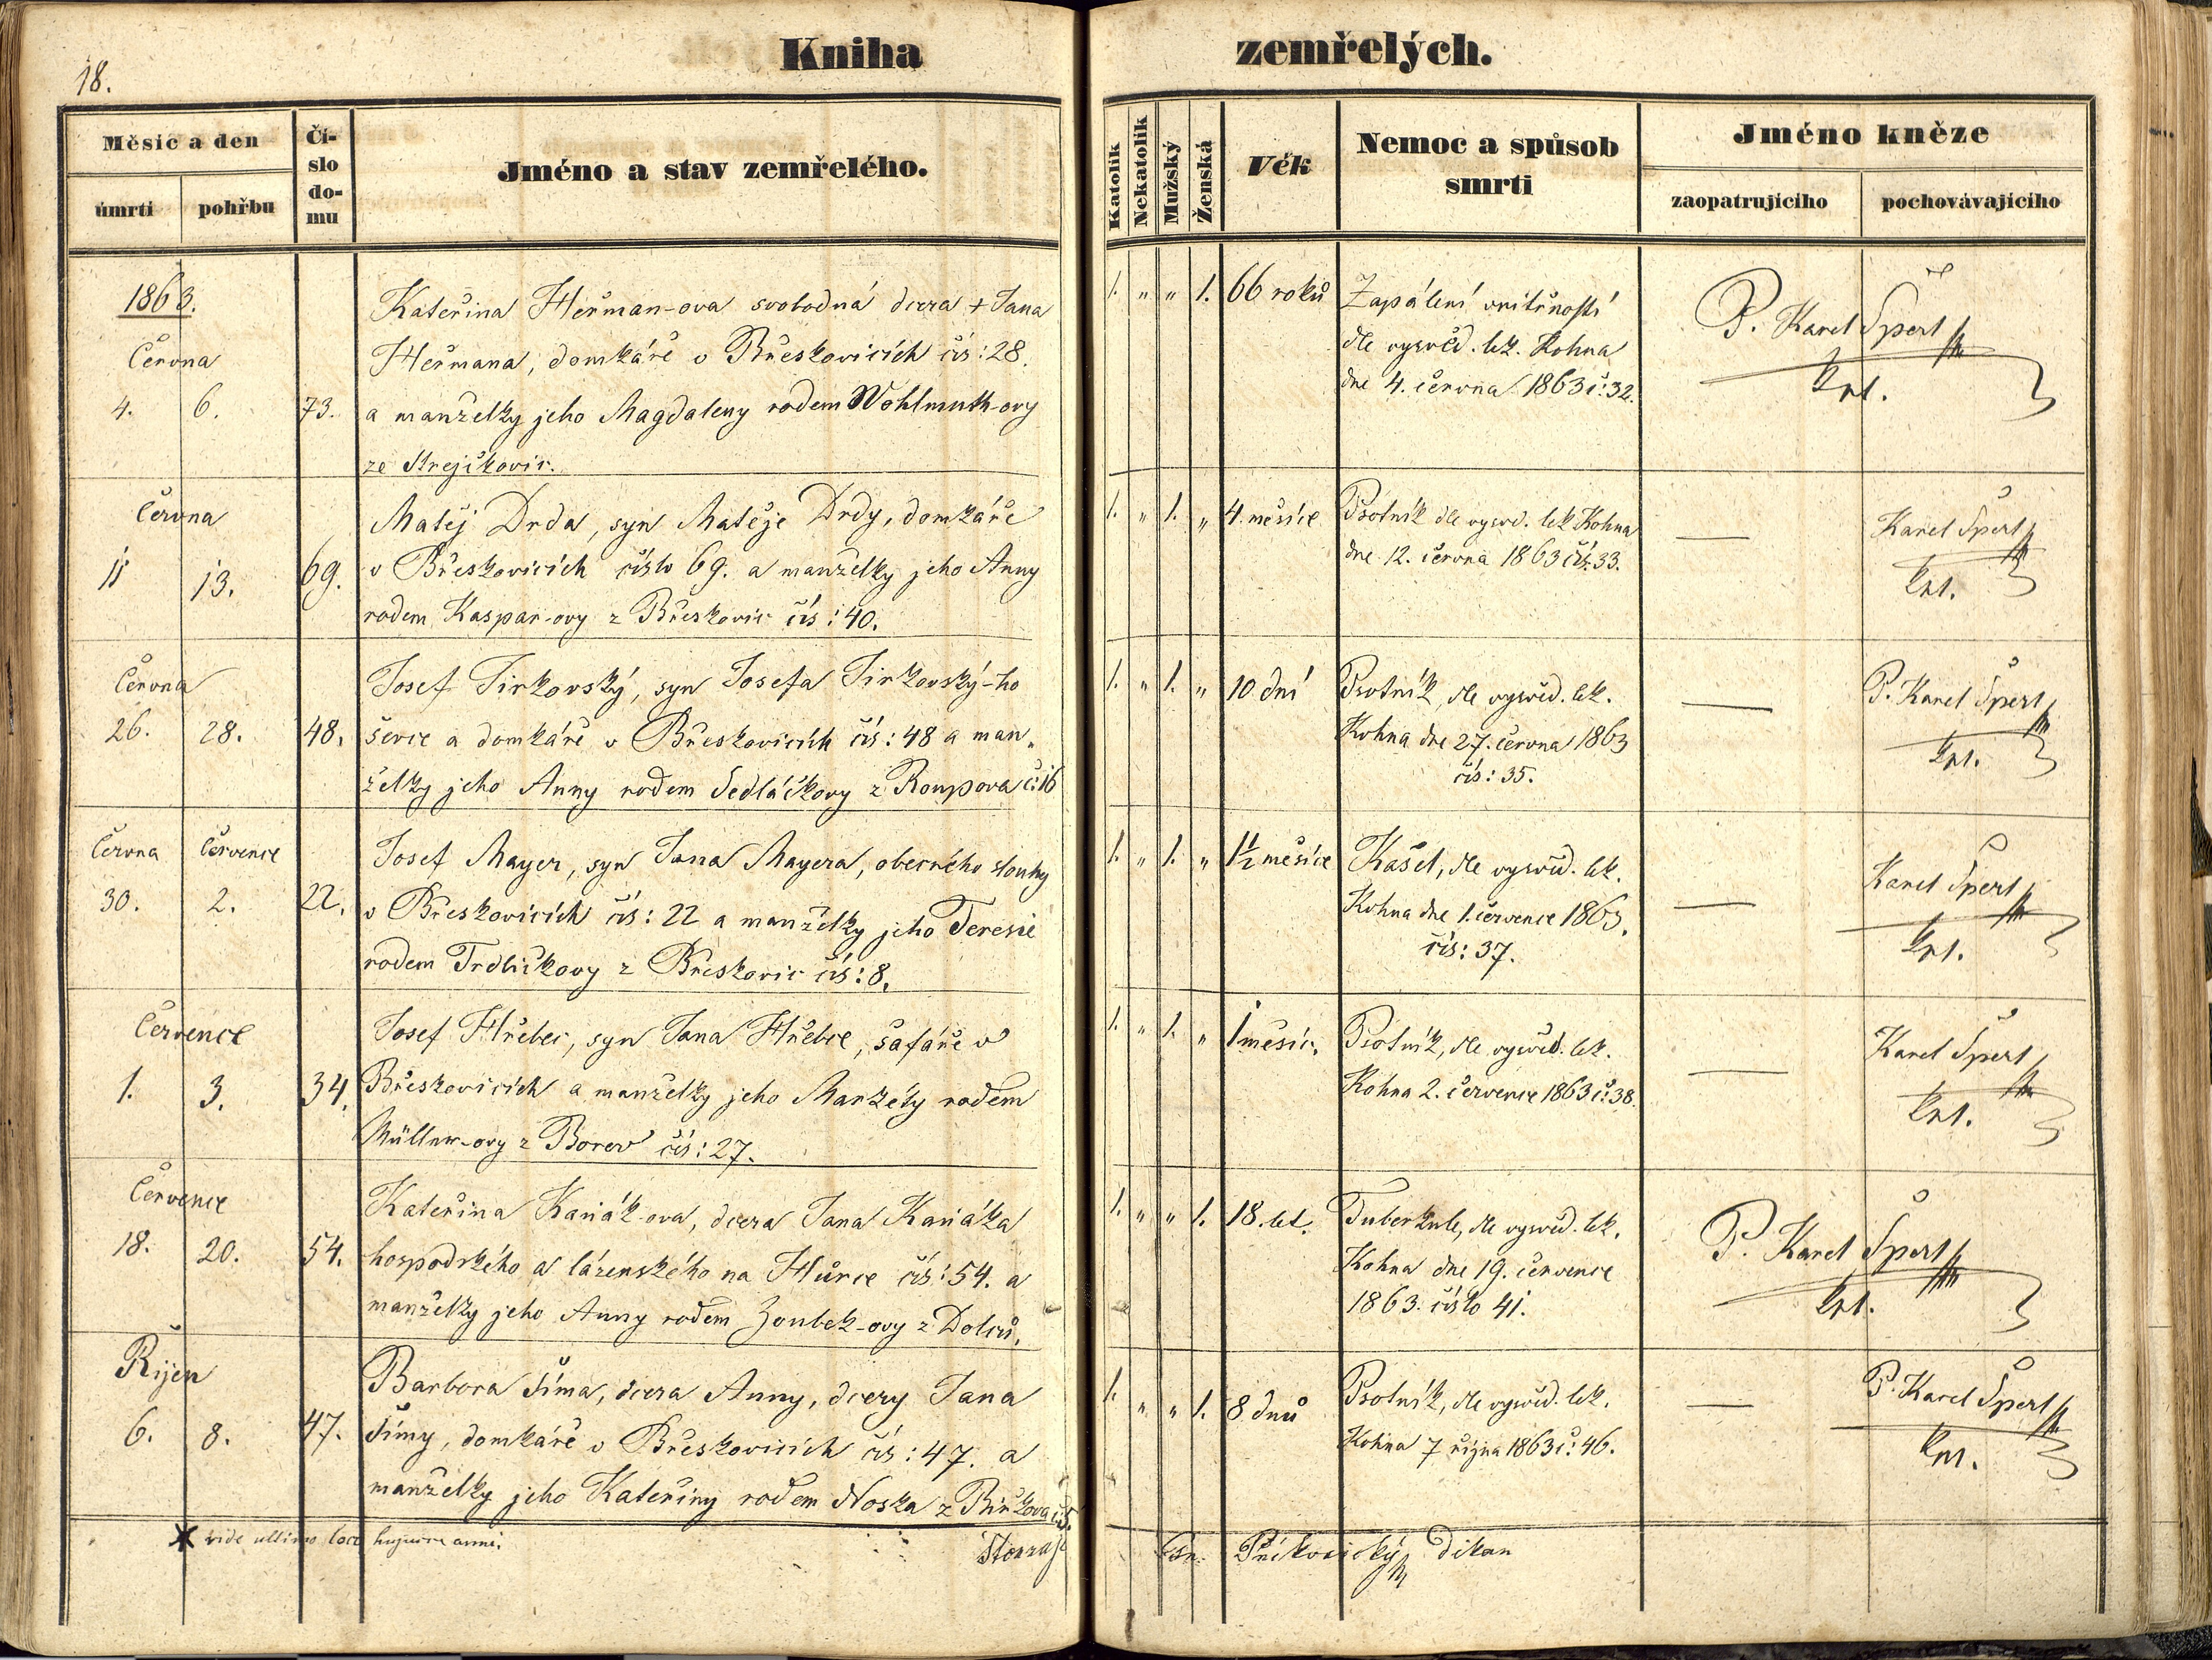 18.
Kniha zemřelých.
Měsíc a den
Čí-
slo
do-
mu
Jméno a stav zemřelého.
úmrtí
pohřbu
Katolík
Nekatolík
Mužský
Ženská
Věk
Nemoc a spůsob
smrti
Jméno kněze
zaopatrujícího
pochovávajícího
1863.
Června
4. 6. 73.
Kateřina Heřman-ova svobodná dcera + Jana
Heřmana, domkáře v Břeskovicích čís: 28.
a manželky jeho Magdaleny rodem Wohlmuth-ovy
ze Krejčkovic.
1. „ „ 1. 66 roků
Zapálení vnitřností
dle vysvěd. lek. Kohna
dne 4. června 1863 č: 32.
P. Karel Špert
kpl.
Června
11 13. 69.
Matěj Drda, syn Matěje Drdy, domkáře
v Břeskovicích číslo 69. a manželky jeho Anny
rodem Kaspar-ovy z Břeskovic čís: 40.
1. „ 1. „ 4. měsíce
Psotník dle vysvd. lek Kohna
dne 12. června 1863 čís. 33.
—
Karel Špert
kpl.
Června
26. 28. 48.
Josef Jirkovský, syn Josefa Jirkovský-ho
ševce a domkáře v Břeskovicích čís: 48 a man„
želky jeho Anny rodem Sedláčkovy z Roupova č: 16
1. „ 1. „ 10 dní
Psotník, dle vysvěd. lek.
Kohna dne 27. června 1863
čís: 35.
—
P. Karel Špert
kpl.
Června Července
30. 2. 22.
Josef Mayer, syn Jana Mayera, obecného slouhy
v Břeskovicích čís: 22 a manželky jeho Teresie
rodem Trdličkovy z Břeskovic čís: 8.
1. „ 1. „ 1 1/2 měsíce
Kašel, dle vysvěd. lek.
Kohna dne 1. července 1863.
čís: 37.
—
Karel Špert
kpl.
Července
1. 3. 34.
Josef Hřebec, syn Jana Hřebce, šafáře v
Břeskovicích a manželky jeho Markéty rodem
Müllner-ovy z Borov čís: 27.
1. „ 1. „ 1 měsíc.
Psotník, dle vysvěd. lek.
Kohna 2. července 1863 č: 38.
—
Karel Špert
kpl.
Července
18. 20. 54.
Kateřina Kaňák-ova, dcera Jana Kaňáka
hospodského a lázenského na Hůrce čís: 54. a
manželky jeho Anny rodem Zoubek-ovy z Dolců.
1. „ „ 1. 18. let.
Tuberkule, dle vysvěd. lek.
Kohna dne 19. července
1863. číslo 41.
P. Karel Špert
kpl.
Říjen
6. 8. 47.
Barbora Šíma, dcera Anny, dcery Jana
Šímy, domkáře v Břeskovicích čís: 47. a
manželky jeho Kateřiny rodem Noska z
1. „ „ 1. 8 dnů
Psotník, dle vysvěd. lek.
Kohna 7 října 1863 č: 46.
—
P. Karel Špert
kpl.
vide ultimo loco hujusce anni.
Příkosický Děkan